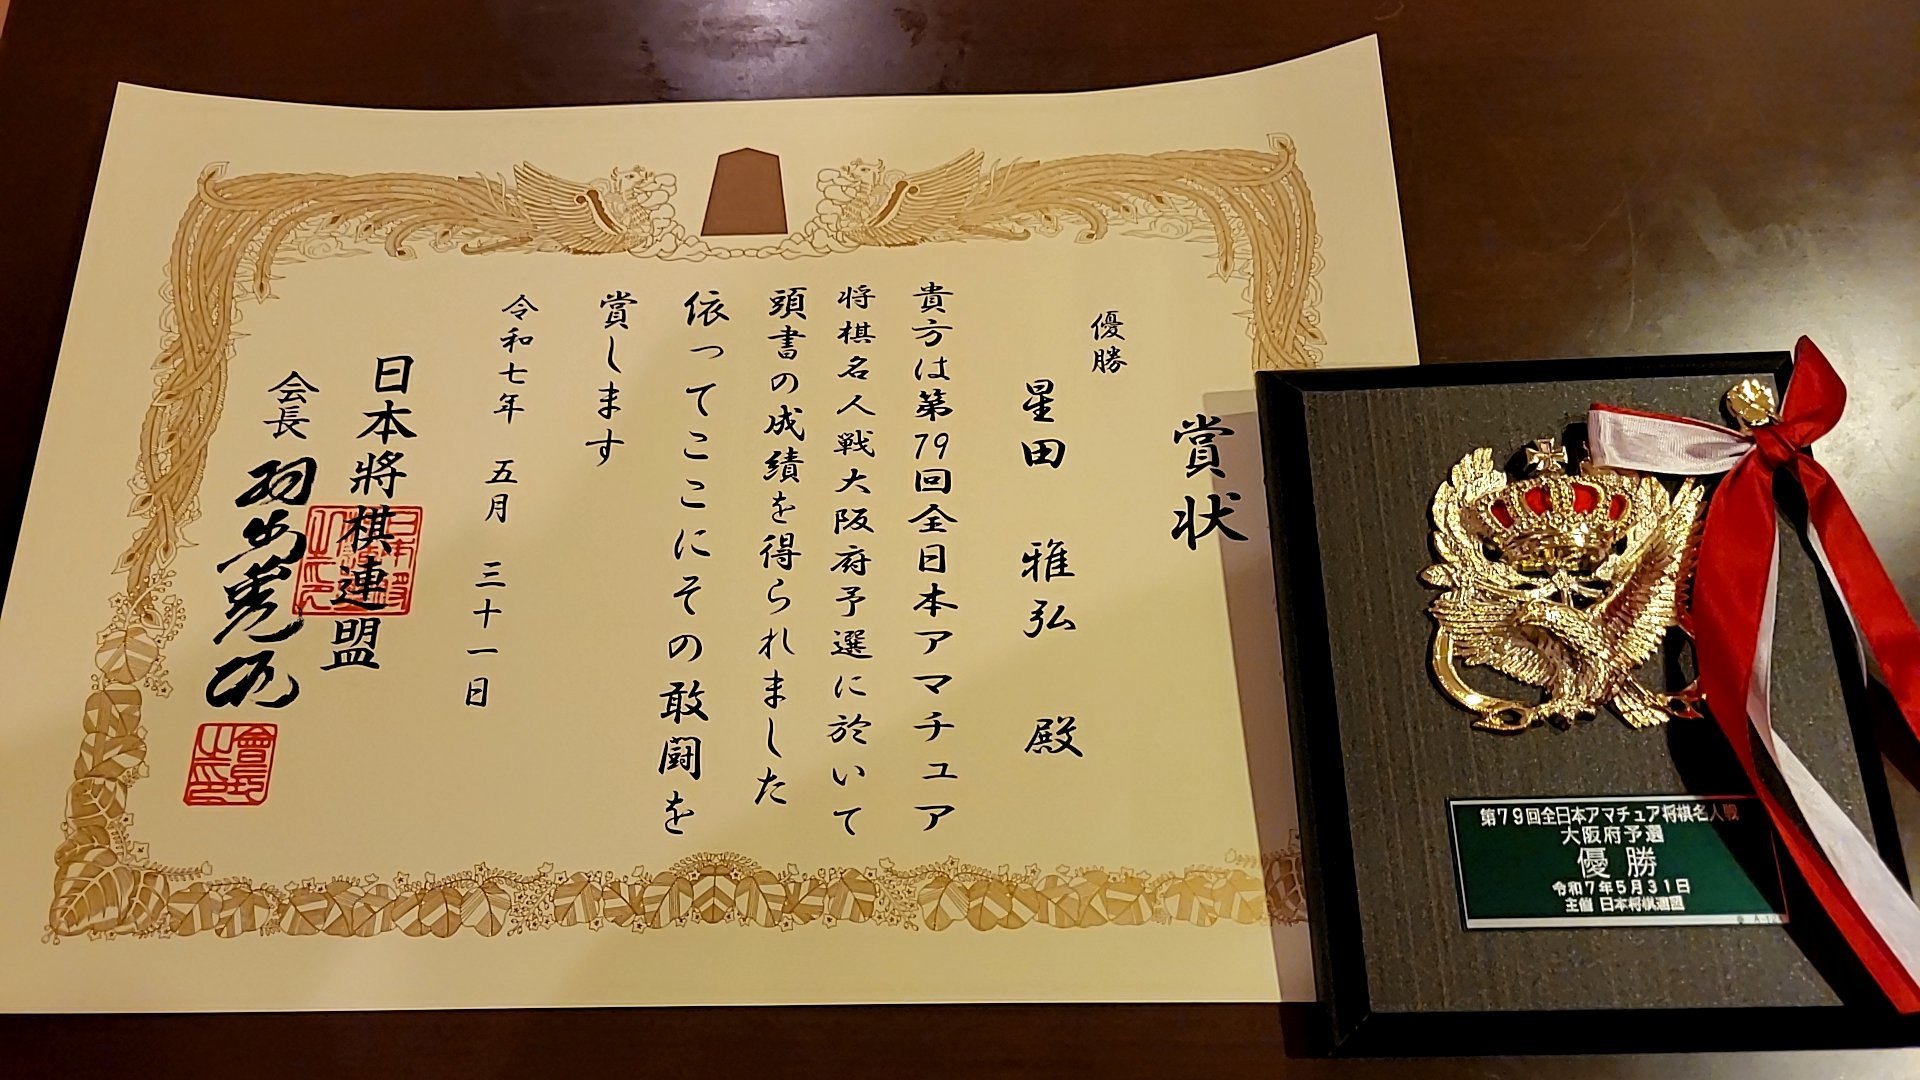 賞状
優勝
星田 雅弘 殿
貴方は第79回全日本アマチュア
将棋名人戦大阪府予選に於いて
頭書の成績を得られました
依ってここにその敢闘を
賞します
令和七年 五月 三十一日
日本將棋連盟
会長 羽生善治
第79回全日本アマチュア将棋名人戦
大阪府予選
優勝
令和7年5月31日
主催 日本将棋連盟